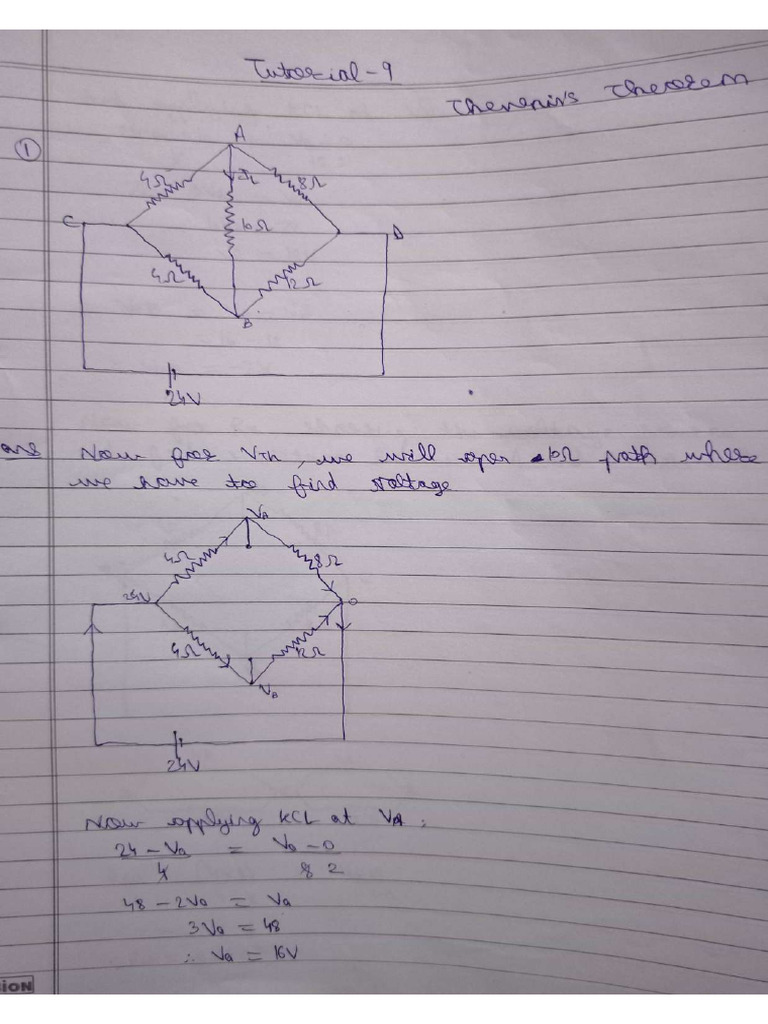 Tutorial-9
Thevenin's Theorem
①
A
4Ω
I₁
8Ω
C
10Ω
D
4Ω
12Ω
B
24V
ans Now for VTh, we will open 10Ω path where
we have to find voltage
VA
4Ω
8Ω
24V
0
4Ω
12Ω
VB
24V
Now applying KCL at VA:
24-Va = Va-0
4 8 2
48-2Va = Va
3Va = 48
∴ Va = 16V
SION